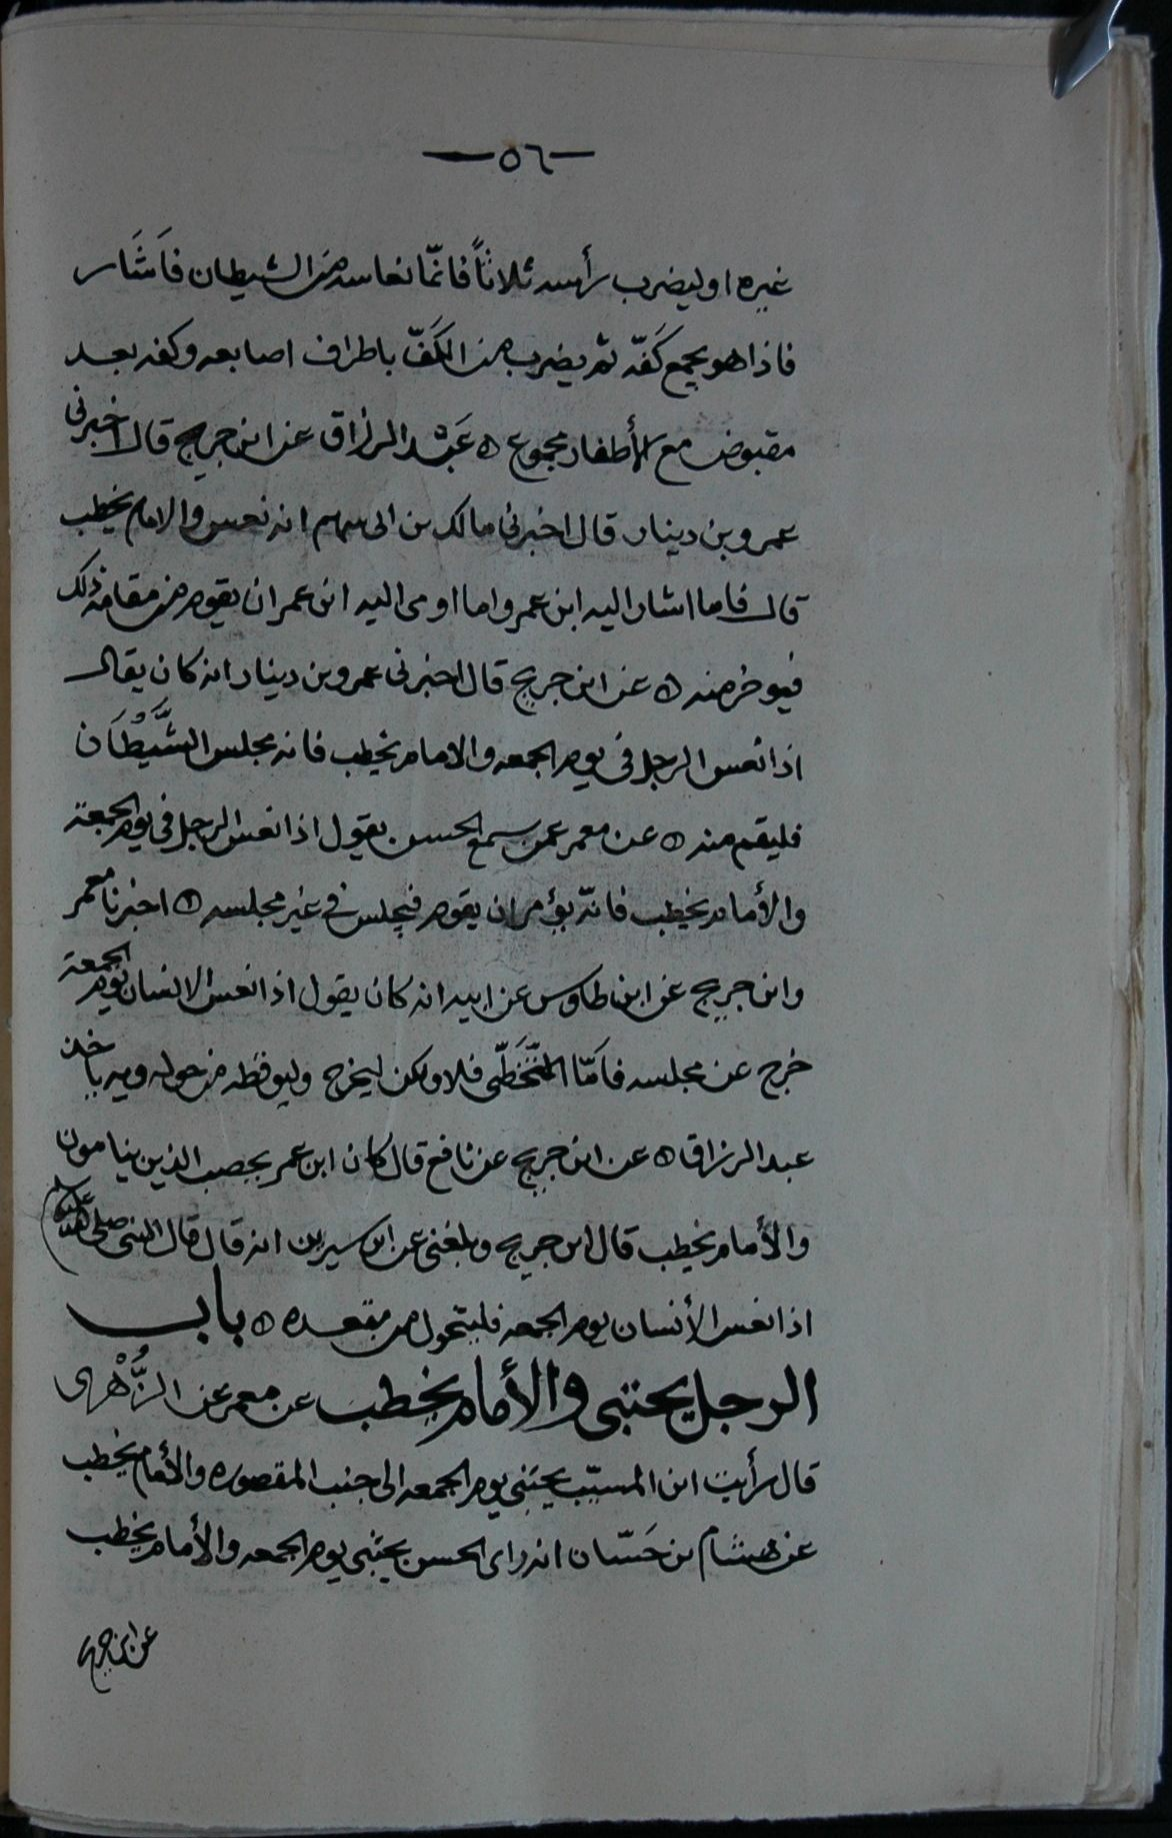 —٥٦—
غيره او ليضرب رأسه ثلاثاً فانمّا نعاسه من الشيطان فاَشَار
فاذا هو يجمع كَفّه ثم يضرب من الكَفّ باطراف اصابعه وكفه بعد
مقبوض مع الأظفار مجموع ه عَبْد الرزاق عن ابن جريج قال اخبرنى
عمرو بن دينار قال اخبرنى مالك بن ابى سهم انه نعس والامام يخطب
قال فاما اشار اليه ابن عمر واما اومى اليه ابن عمر ان يقوم من مقامه ذلك
فيوخر منه ه عن ابن جريج قال اخبرنى عمرو بن دينار انه كان يقال
اذا نعس الرجل فى يوم الجمعه والامام يخطب فانه مجلس الشَّيْطَان
فليقم منه ه عن معمر عمن سمع الحسن يقول اذا نعس الرجل في يوم الجمعة
والأمام يخطب فانّه يؤمر ان يقوم فيجلس في غير مجلسه ه اخبرنا معمر
وابن جريج عن ابن طاوس عن ابيه انه كان يقول اذا نعس الانسان يوم الجمعة
خرج عن مجلسه فاَمّا التَّخَطّى فلا ولكن ليخرج وليوقظه من حوله وبه ياخذ
عبد الرزاق ه عن ابن جريج عن نافع قال كان ابن عمر يحصب الذين ينامون
والأمام يخطب قال ابن جريج وبلغنى عن ابن سيرين انه قال قال النبى صلى الله عليه
اذا نعس الأنسان يوم الجمعه فليتحول من مقعده ه باب
الرجل يحتبى والأمام يخطب عن معمر عن الزُّهْرى
قال رأيت ابن المسيّب يحتبى يوم الجمعه الى جنب المقصوره والأمام يخطب
عن هشام بن حَسّان انه راى الحسن يحتبى يوم الجمعه والأمام يخطب
عن ابن جريج